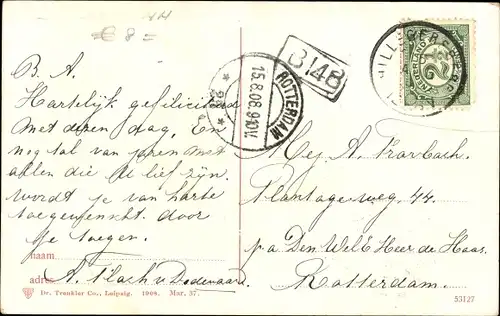 € 8 =
B. A.
Hartelijk gefeliciteerd
met dezen dag, En
nog tal van jaren met
allen die At lief zijn
wordt je van harte
toegewenscht door
je
naam
adres A. Flach v Dodewaard.
Dr. Trenkler Co., Leipzig. 1908. Mar. 37.
ROTTERDAM
15.8.08. 9-10V.
B148
HILLEGERSBERG
NEDERLAND
2½
Mej A.
Plantageweg. 44.
p.a Den Wel E Heer de Haas.
Rotterdam.
53127